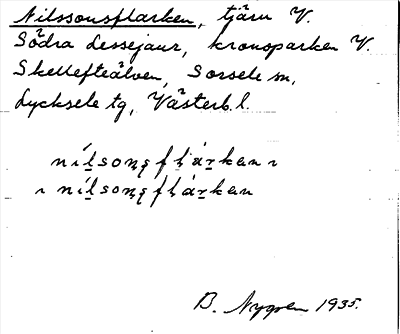 Nilssonsflarken, tjärn V.
Södra Lessejaur, kronoparken V.
Skellefteälven, Sorsele sn,
Lycksele tg, Västerb. l.
nílsonsflárkan ı
ı nílsonsflárkan
B. Nygren 1935.